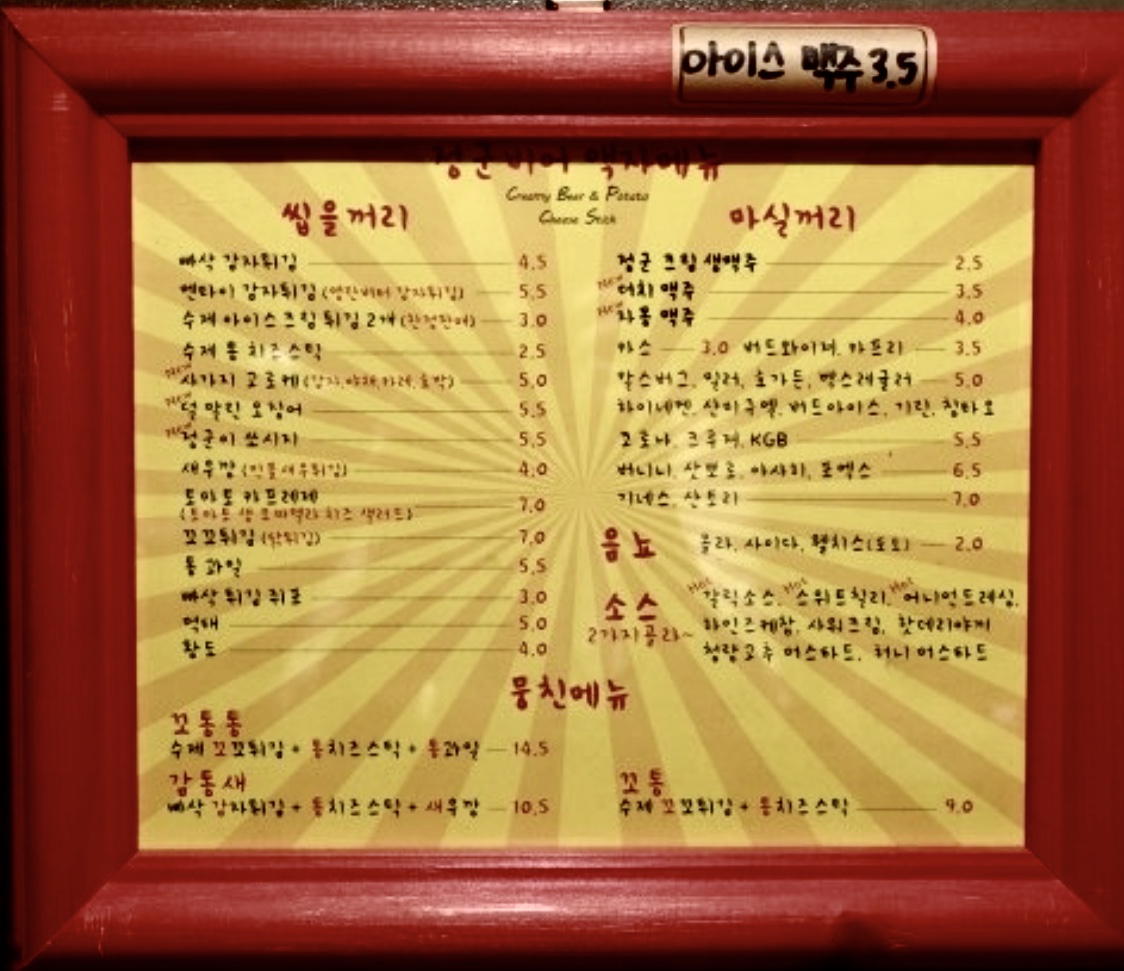 아이스 맥주 3.5
정군비어 액자메뉴
Creamy Beer & Potato
Cheese Stick
씹을꺼리
빠삭 감자튀김 4.5
멘타이 감자튀김 (명란버터 감자튀김) 5.5
수제 아이스크림 튀김 2개 (한정판매) 3.0
수제 통 치즈스틱 2.5
New 사가지 고로케 (감자,야채,카레,호박) 5.0
New 덜 말린 오징어 5.5
New 정군이 쏘시지 5.5
새우깡 (민물새우튀김) 4.0
토마토 카프레제 7.0
(토마토 생 모짜렐라 치즈 샐러드)
꼬꼬튀김 (닭튀김) 7.0
통 과일 5.5
빠삭 튀김 쥐포 3.0
먹태 5.0
황도 4.0
마실꺼리
정군 크림 생맥주 2.5
New 더치 맥주 3.5
New 자몽 맥주 4.0
카스 3.0 버드와이저, 카프리 3.5
칼스버그, 밀러, 호가든, 벡스레귤러 5.0
하이네켄, 산미구엘, 버드아이스, 기린, 칭따오
코로나, 크루저, KGB 5.5
버니니, 삿뽀로, 아사히, 포엑스 6.5
기네스, 산토리 7.0
음뇨 콜라, 사이다, 웰치스(포도) 2.0
소스
2가지골라~
Hot 갈릭소스, Hot 스위트칠리, Hot 어니언드레싱,
하인즈케찹, 사워크림, 핫데리야끼
청량고추 머스타드, 허니 머스타드
뭉친메뉴
꼬통통
수제 꼬꼬튀김 + 통치즈스틱 + 통과일 14.5
감통새
빠삭 감자튀김 + 통치즈스틱 + 새우깡 10.5
꼬통
수제 꼬꼬튀김 + 통치즈스틱 9.0